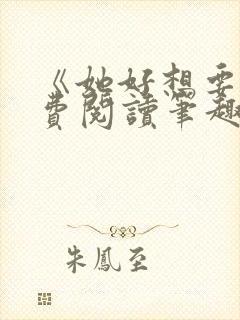 《她好想要
費閱讀筆趣
朱鳳至